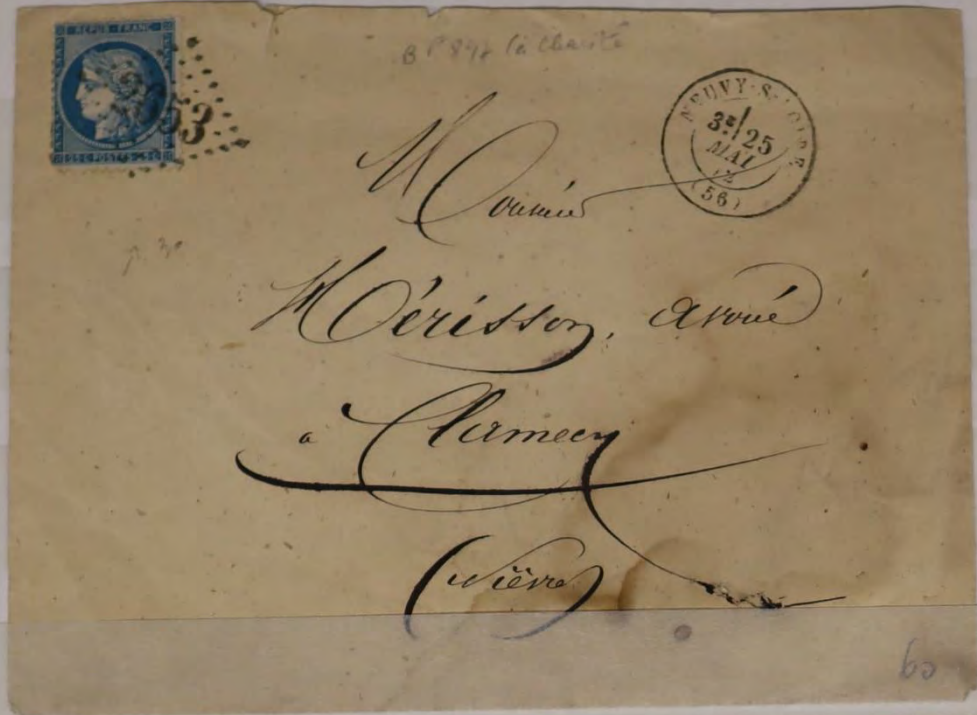 REPUB. FRANC.
25 C. POSTES 25 C.
B P 898 la Charité
NEUVY-S-LOIRE
3E/ 25
MAI
72
(56)
Monsieur
Mérisson, avoué
a Clamecy
(Nièvre)
60